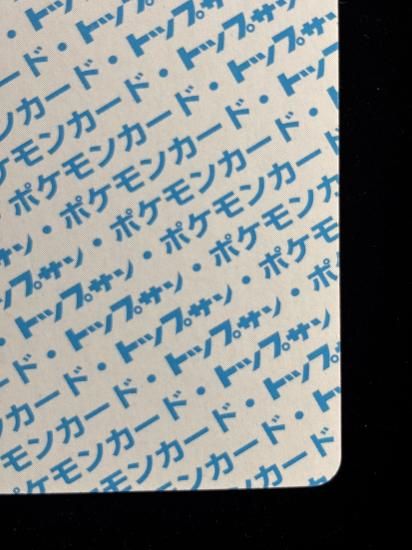 ・トッ
ード・トップサ
ンカード・トップサン
ケモンカード・トップサン
ポケモンカード・トップサン
サン・ポケモンカード・トップ
ップサン・ポケモンカード・ト
トップサン・ポケモンカード
・トップサン・ポケモンカ
ド・トップサン・ポケモ
ード・トップサン・ポ
カード・トップサン
モンカード・トップ
ケモンカード・ト
カード